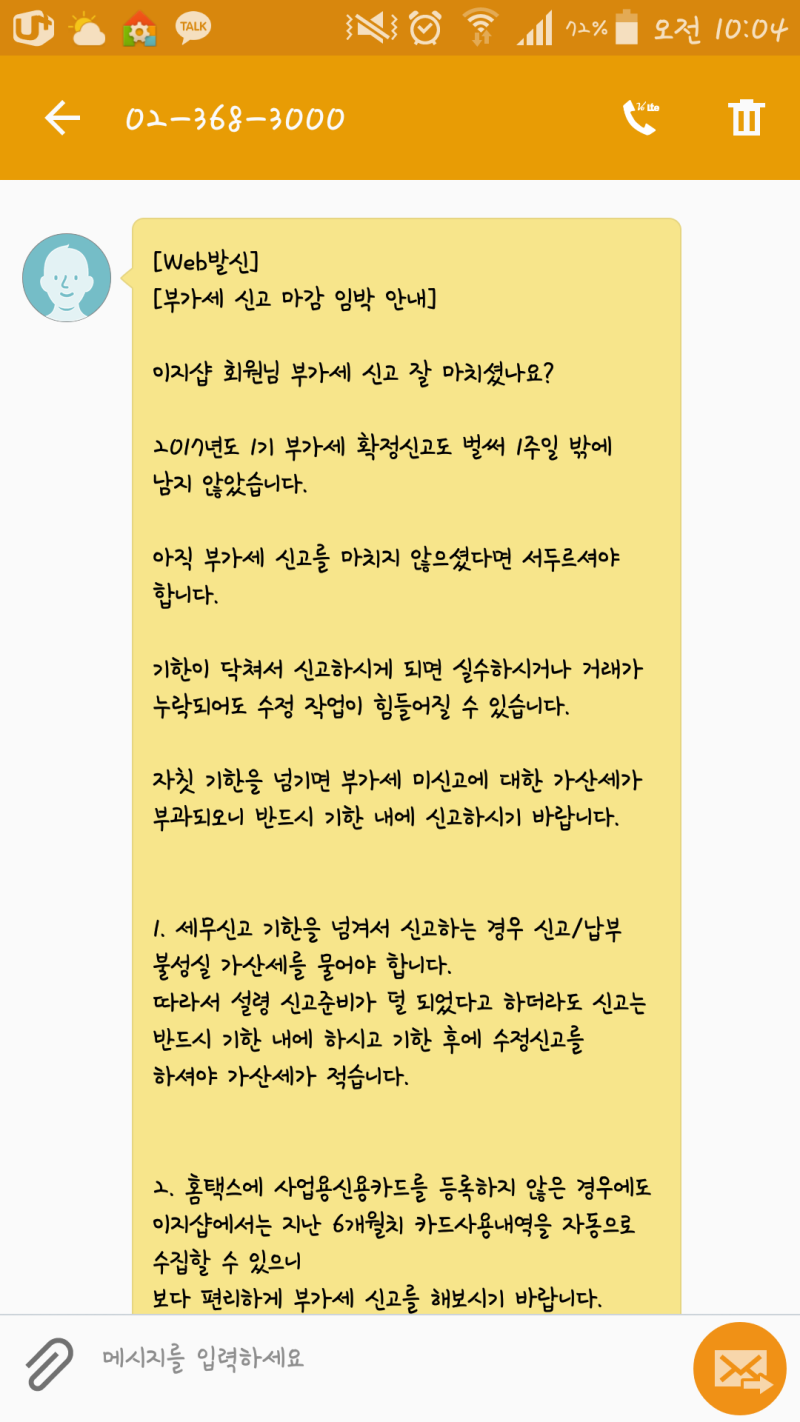 TALK
72%
오전 10:04
02-368-3000
[Web발신]
[부가세 신고 마감 임박 안내]
이지샵 회원님 부가세 신고 잘 마치셨나요?
2017년도 1기 부가세 확정신고도 벌써 1주일 밖에
남지 않았습니다.
아직 부가세 신고를 마치지 않으셨다면 서두르셔야
합니다.
기한이 닥쳐서 신고하시게 되면 실수하시거나 거래가
누락되어도 수정 작업이 힘들어질 수 있습니다.
자칫 기한을 넘기면 부가세 미신고에 대한 가산세가
부과되오니 반드시 기한 내에 신고하시기 바랍니다.
1. 세무신고 기한을 넘겨서 신고하는 경우 신고/납부
불성실 가산세를 물어야 합니다.
따라서 설령 신고준비가 덜 되었다고 하더라도 신고는
반드시 기한 내에 하시고 기한 후에 수정신고를
하셔야 가산세가 적습니다.
2. 홈택스에 사업용신용카드를 등록하지 않은 경우에도
이지샵에서는 지난 6개월치 카드사용내역을 자동으로
수집할 수 있으니
보다 편리하게 부가세 신고를 해보시기 바랍니다.
메시지를 입력하세요